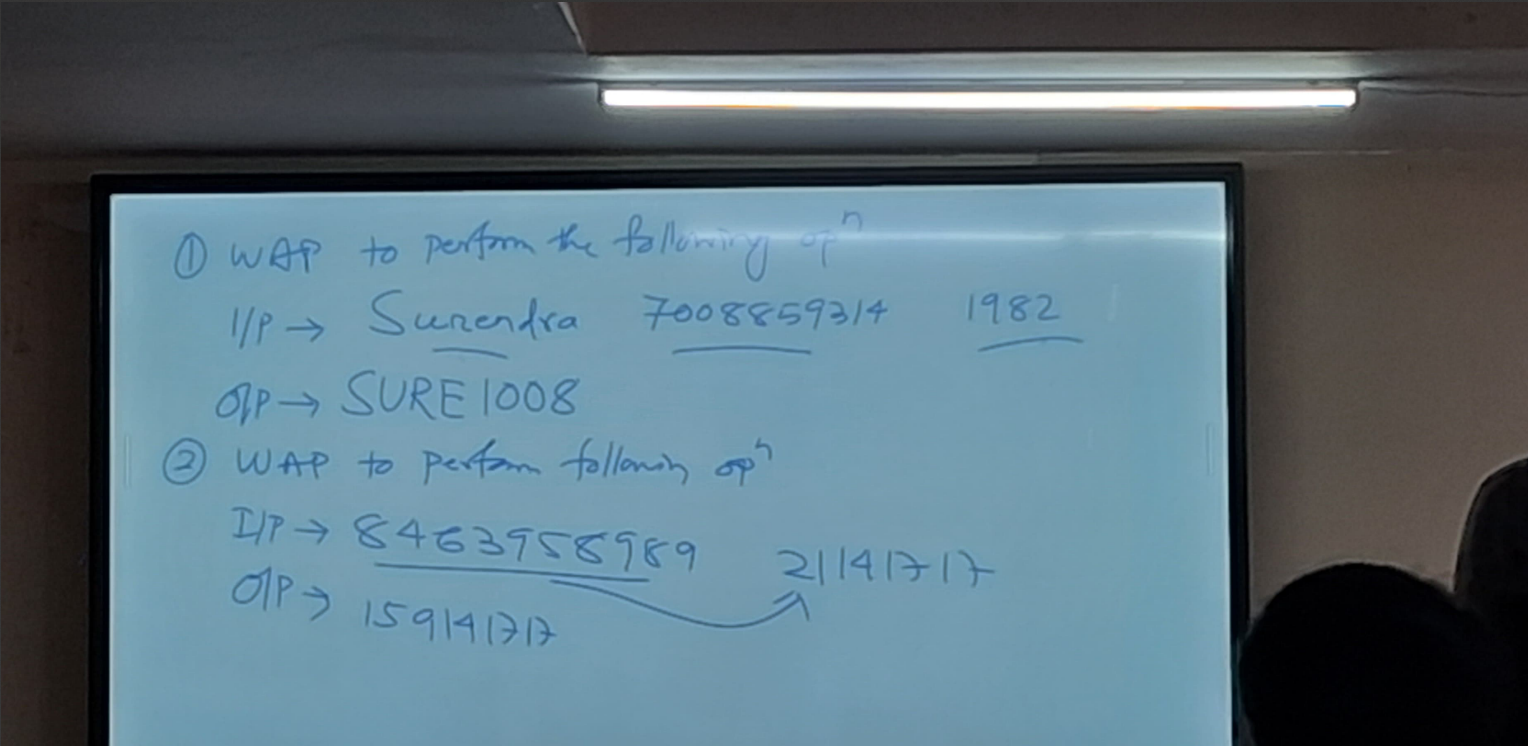 ① WAP to perform the following opⁿ
I/P → Surendra 7008859314 1982
O/P → SURE1008
② WAP to perform following opⁿ
I/P → 8463958989
21141717
O/P → 159141717